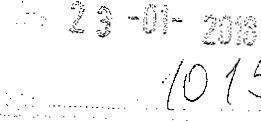 23-01-2018
1015